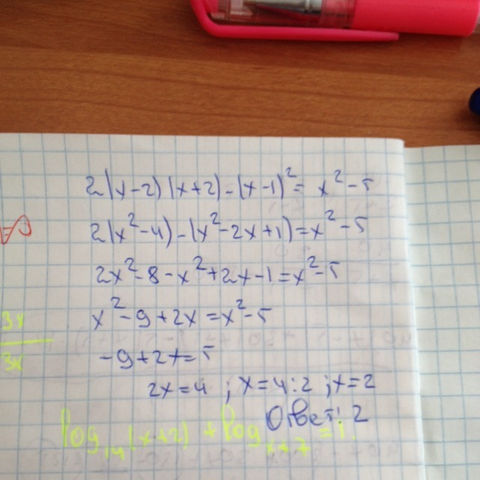 2(x-2)(x+2)-(x-1)²= x²-5
2(x²-4)-(x²-2x+1)=x²-5
2x²-8-x²+2x-1=x²-5
x²-9+2x=x²-5
-9+2x=-5
2x=4 ; x=4:2 ; x=2
Ответ: 2
3x
3x